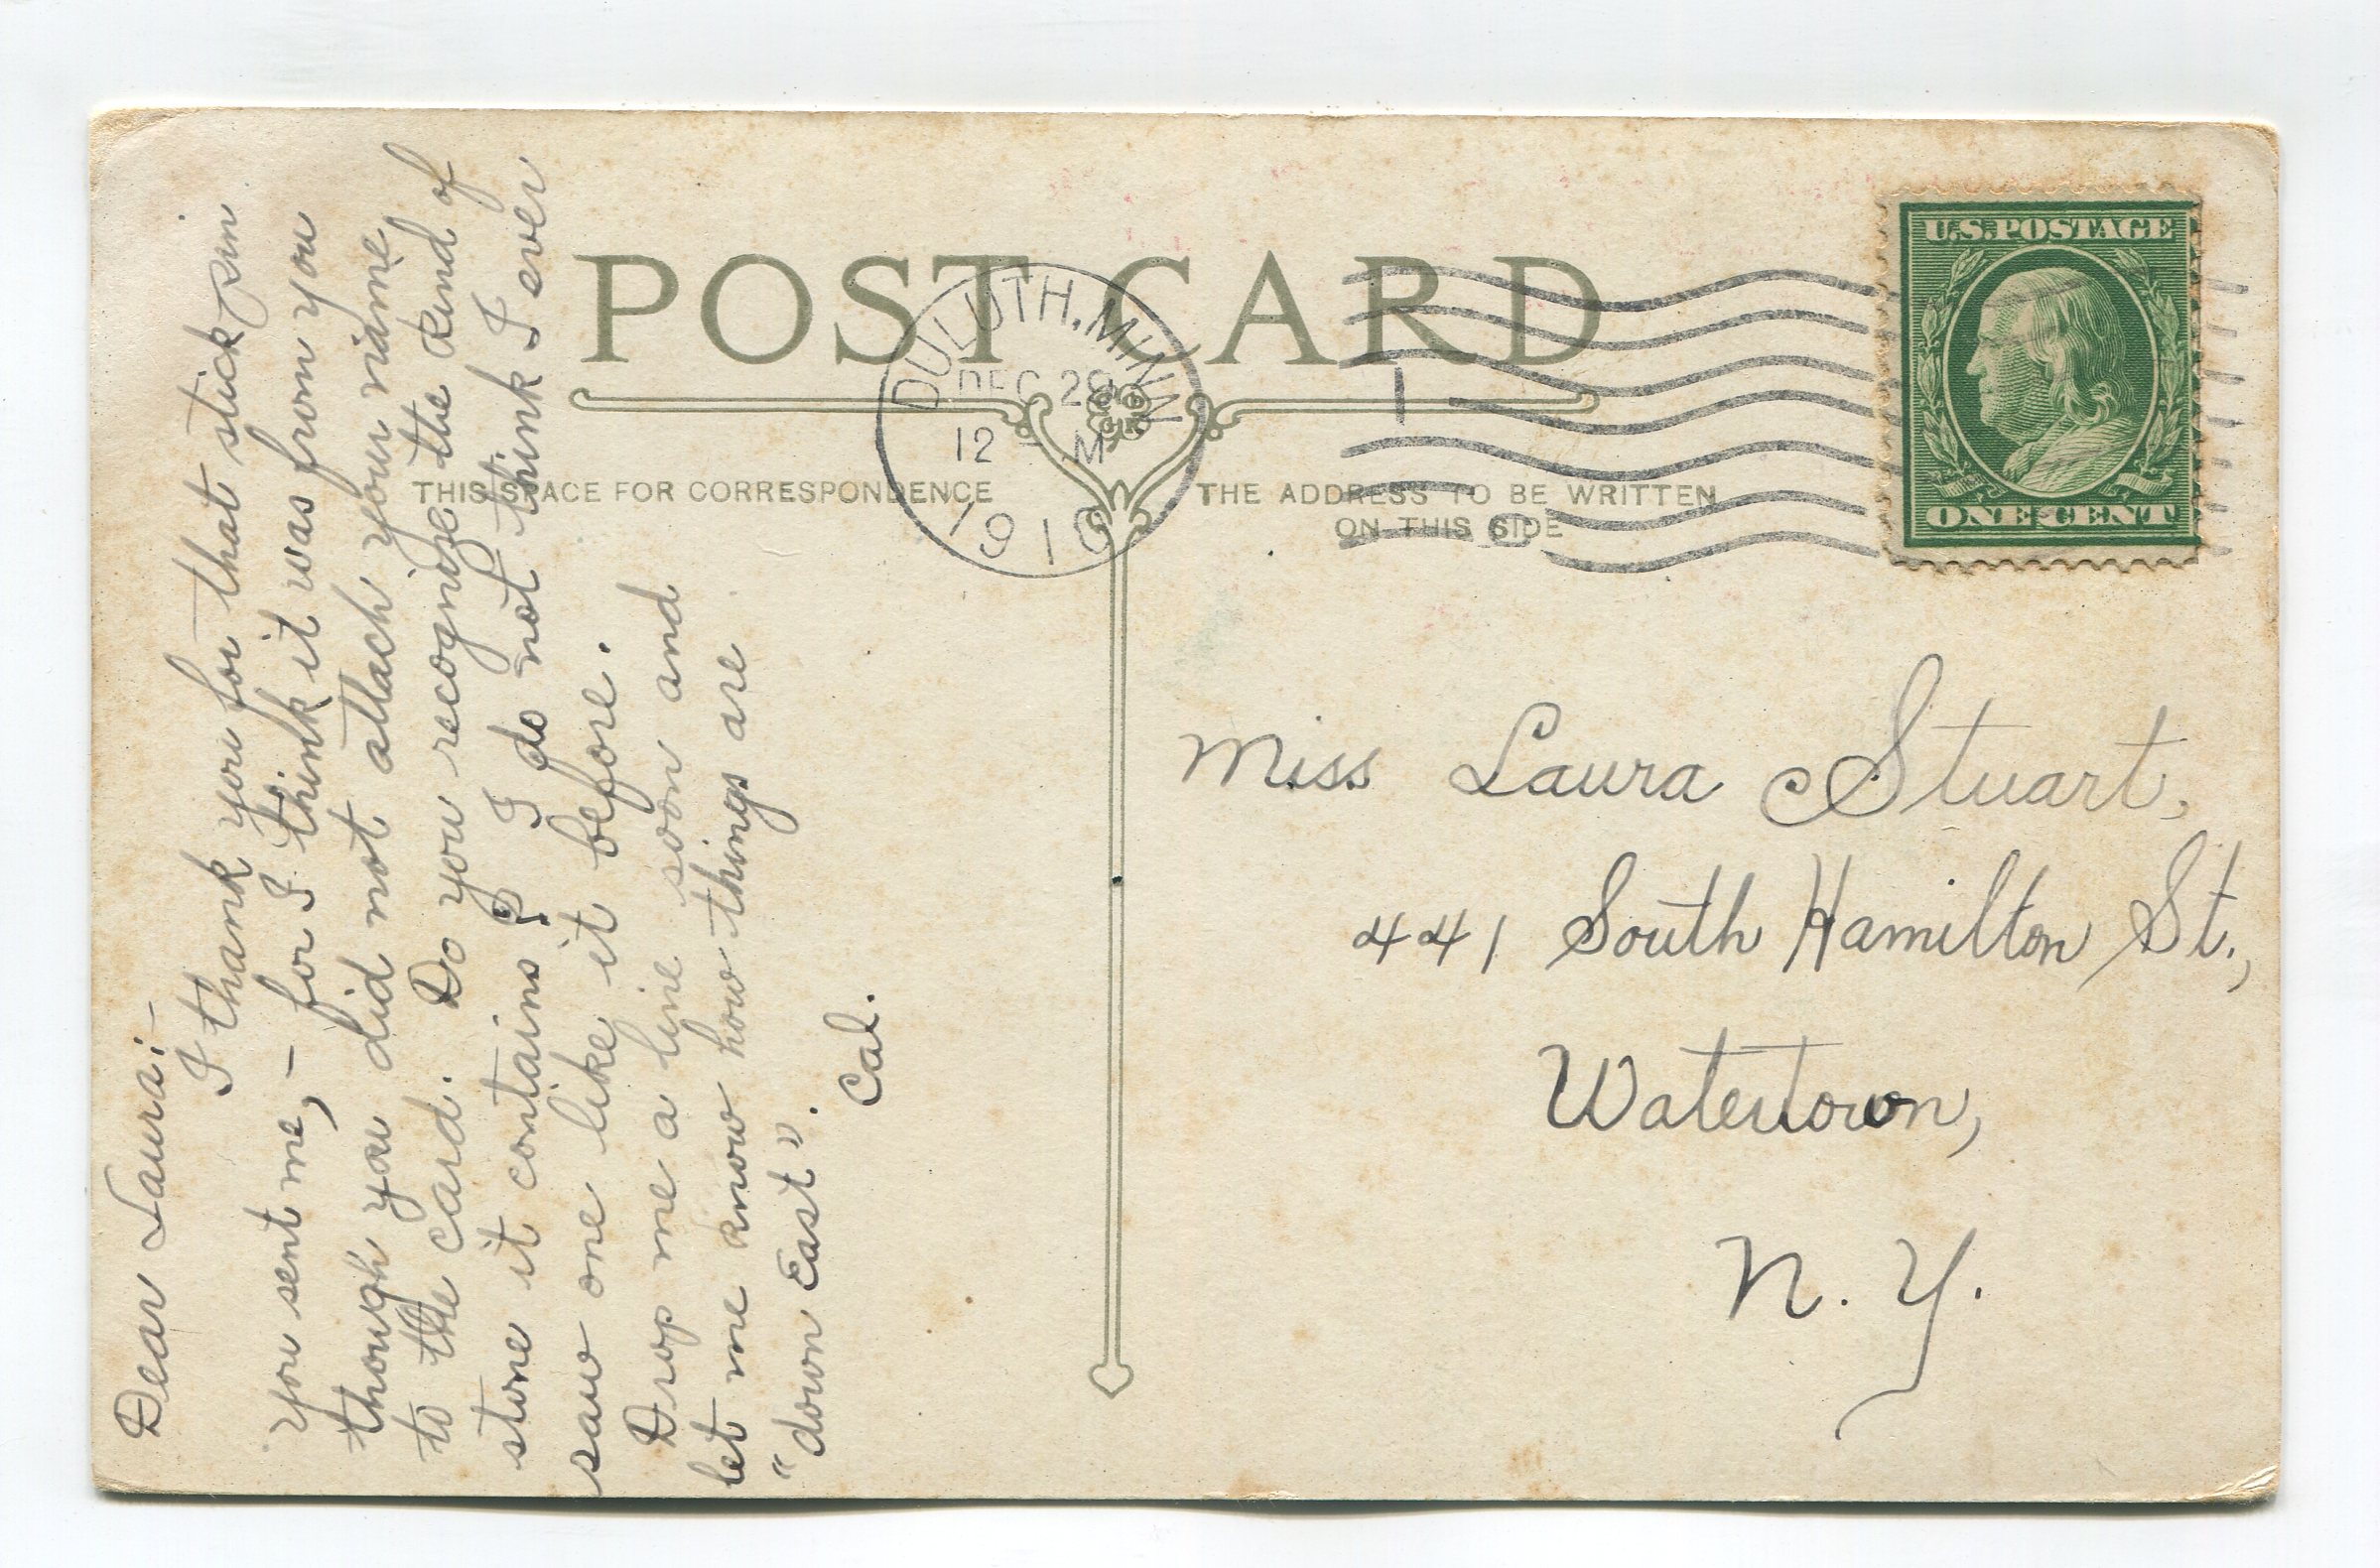 POST CARD
THIS SPACE FOR CORRESPONDENCE
THE ADDRESS TO BE WRITTEN
ON THIS SIDE
DULUTH, MINN.
DEC 28
12 M
1910
U.S. POSTAGE
ONE CENT
Dear Laura:—
I thank you for that stick pin
you sent me, — for I think it was from you
though you did not attach your name
to the card. Do you recognize the kind of
stone it contains? I do not think I ever
saw one like it before.
Drop me a line soon and
let me know how things are
"down East".
Cal.
Miss Laura Stuart,
441 South Hamilton St.,
Watertown,
N. Y.